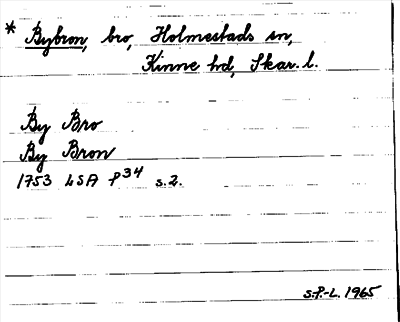 * Bybron, bro, Holmestads sn,
Kinne hd, Skar. l.
By Bro
By Bron
1753 LSA P34 s.2.
S.P.-L. 1965